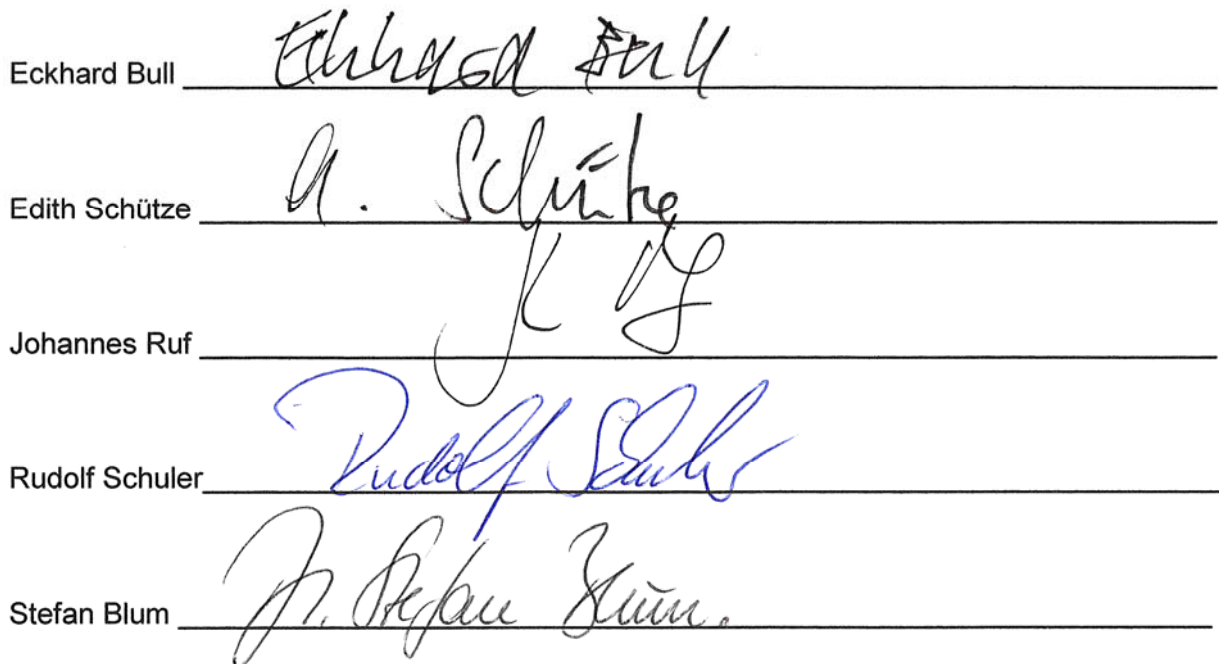 Eckhard Bull Eckhard Bull
Edith Schütze A. Schütze
Johannes Ruf
Rudolf Schuler Rudolf Schuler
Stefan Blum Dr. Stefan Blum.